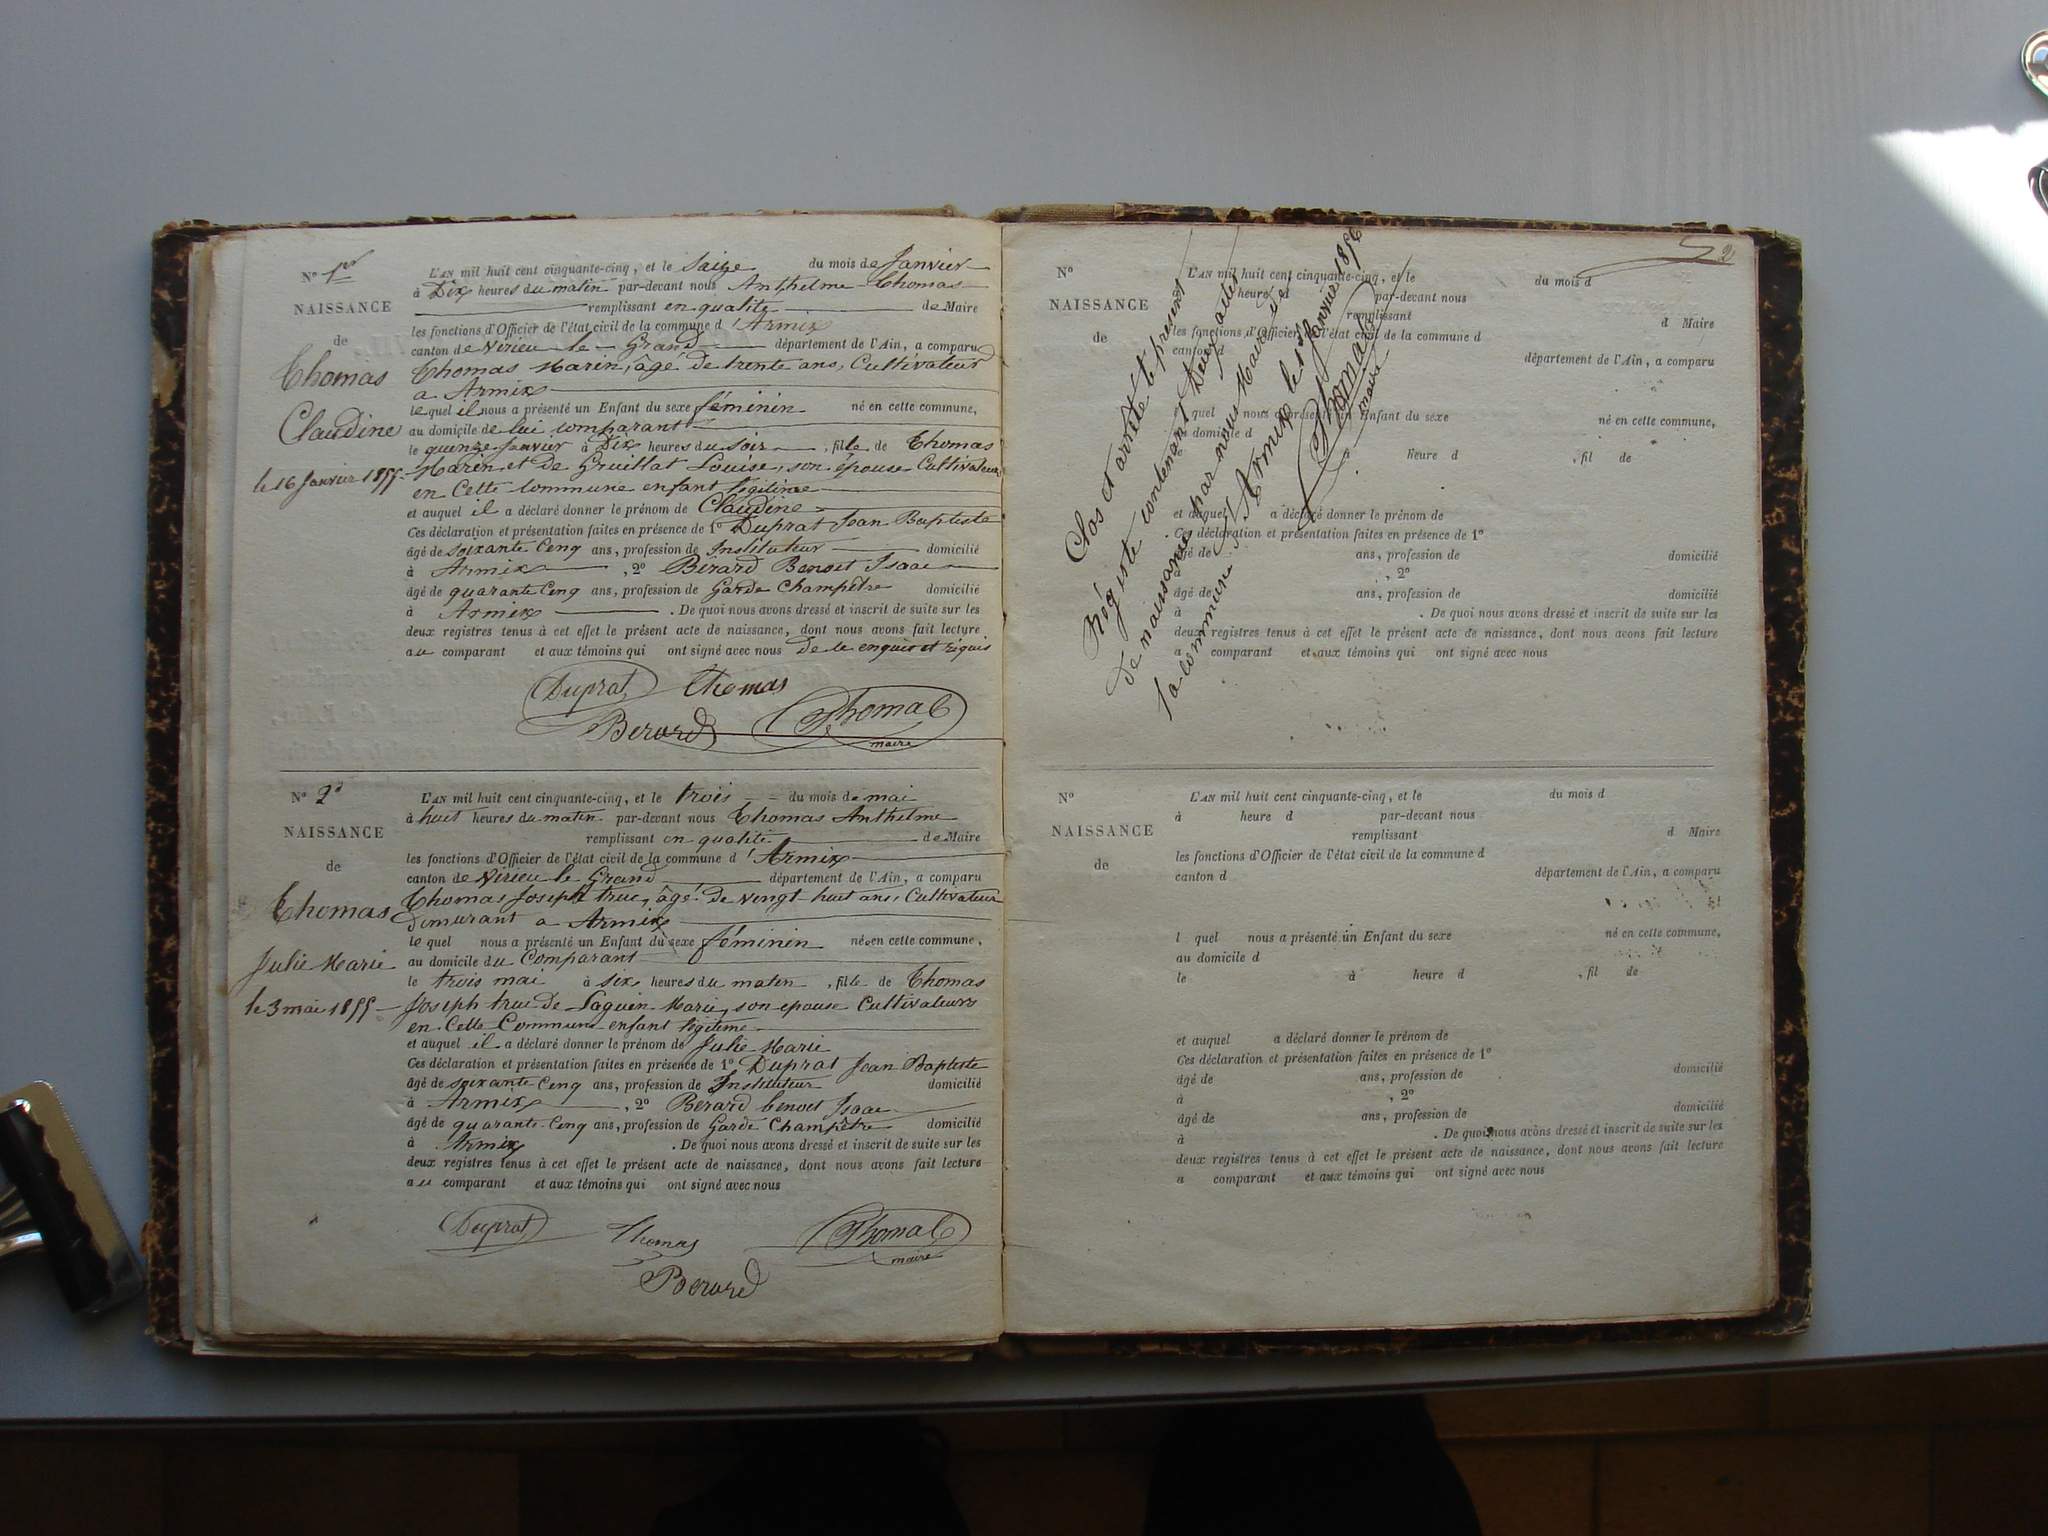 N° 1er
NAISSANCE
de
Thomas
Claudine
le 16 Janvier 1855
L'AN mil huit cent cinquante-cinq, et le Saize du mois de Janvier
à Dix heures du matin par-devant nous Anthelme Thomas
remplissant en qualité de Maire
les fonctions d'Officier de l'état civil de la commune d'Armix
canton de Virieu le Grand département de l'Ain, a comparu
Thomas Marin, âgé de trente ans, Cultivateur
a Armix
lequel il nous a présenté un Enfant du sexe féminin né en cette commune,
au domicile de lui comparant
le quenze Janvier à Dix heures du soir, fille de Thomas
Marin et de Gruillat Louise, son épouse Cultivateurs
en Cette Commune enfant légitime
et auquel il a déclaré donner le prénom de Claudine
Ces déclaration et présentation faites en présence de 1° Duprat Jean Baptiste
âgé de soixante Cenq ans, profession de Instituteur domicilié
à Armix, 2° Bérard Benoet Isaac
âgé de quarante Cenq ans, profession de Garde Champêtre domicilié
à Armix. De quoi nous avons dressé et inscrit de suite sur les
deux registres tenus à cet effet le présent acte de naissance, dont nous avons fait lecture
au comparant et aux témoins qui ont signé avec nous de ce enquis et réquis
Duprat Thomas
Berard Thomas
maire
N° 2d
NAISSANCE
de
Thomas
Julie Marie
le 3 mai 1855
L'AN mil huit cent cinquante-cinq, et le trois du mois de mai
à huit heures du maten par-devant nous Thomas Anthelme
remplissant en qualité de Maire
les fonctions d'Officier de l'état civil de la commune d'Armix
canton de Virieu le Grand département de l'Ain, a comparu
Thomas Joseph truc, âgé de vengt huit ans, Cultivateur
Demurant a Armix
le quel nous a présenté un Enfant du sexe féminin née en cette commune,
au domicile du Comparant
le trois mai à six heures du maten, fille de Thomas
Joseph truc de Saguin Marie, son epouse Cultivateurs
en Cette Commune enfant légitime
et auquel il a déclaré donner le prénom de Julie Marie
Ces déclaration et présentation faites en présence de 1° Duprat Jean Baptiste
âgé de soixante Cenq ans, profession de Instituteur domicilié
à Armix, 2° Berard benoet Isaac
âgé de quarante Cenq ans, profession de Garde Champêtre domicilié
à Armix. De quoi nous avons dressé et inscrit de suite sur les
deux registres tenus à cet effet le présent acte de naissance, dont nous avons fait lecture
au comparant et aux témoins qui ont signé avec nous
Duprat Thomas Thomas
maire
Berard
2
N°
NAISSANCE
de
L'AN mil huit cent cinquante-cinq, et le du mois d
heure d par-devant nous
remplissant d Maire
les fonctions d'Officier de l'état civil de la commune d
canton d département de l'Ain, a comparu
l quel nous a présenté un Enfant du sexe né en cette commune,
au domicile d
le à heure d, fil de
et auquel a déclaré donner le prénom de
Ces déclaration et présentation faites en présence de 1°
âgé de ans, profession de domicilié
à, 2°
âgé de ans, profession de domicilié
à. De quoi nous avons dressé et inscrit de suite sur les
deux registres tenus à cet effet le présent acte de naissance, dont nous avons fait lecture
a comparant et aux témoins qui ont signé avec nous
Clos et arrêté le présent
Régistre contenant Deux actes
de naissance par nous Maire de
la commune d'Armix le 1er Janvier 1856
Thomas
maire
N°
NAISSANCE
de
L'AN mil huit cent cinquante-cinq, et le du mois d
à heure d par-devant nous
remplissant d Maire
les fonctions d'Officier de l'état civil de la commune d
canton d département de l'Ain, a comparu
l quel nous a présenté un Enfant du sexe né en cette commune,
au domicile d
le à heure d, fil de
et auquel a déclaré donner le prénom de
Ces déclaration et présentation faites en présence de 1°
âgé de ans, profession de domicilié
à, 2°
âgé de ans, profession de domicilié
à. De quoi nous avons dressé et inscrit de suite sur les
deux registres tenus à cet effet le présent acte de naissance, dont nous avons fait lecture
a comparant et aux témoins qui ont signé avec nous